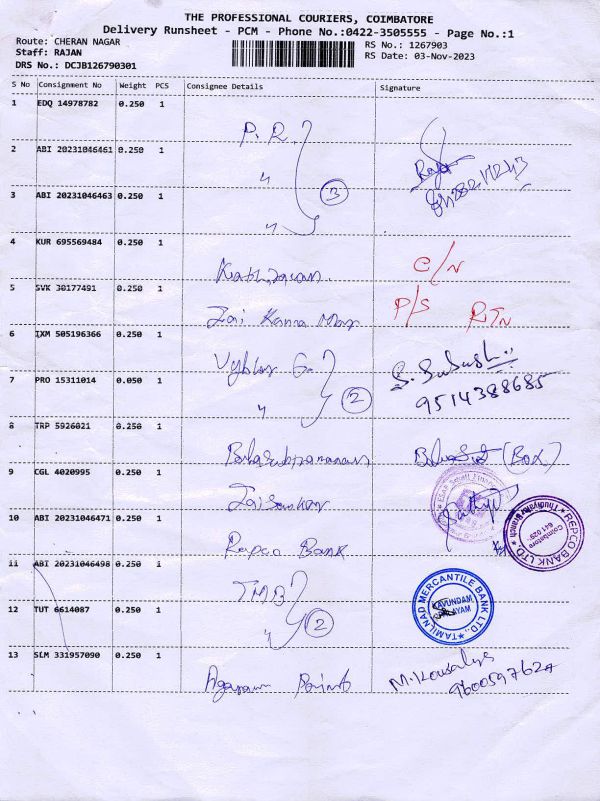 THE PROFESSIONAL COURIERS, COIMBATORE
Delivery Runsheet - PCM - Phone No.:0422-3505555 - Page No.:1
Route: CHERAN NAGAR
RS No.: 1267903
Staff: RAJAN
RS Date: 03-Nov-2023
DRS No.: DCJB126790301
S No Consignment No Weight PCS Consignee Details Signature
1 EDQ 14978782 0.250 1
P.R.
2 ABI 20231046461 0.250 1
"
3
3 ABI 20231046463 0.250 1
"
4 KUR 695569484 0.250 1
C/N
5 SVK 30177491 0.250 1
P/S RTN
Jai Kanna
6 IXM 505196366 0.250 1
S. Subash
7 PRO 15311014 0.050 1
" 2
9514388685
8 TRP 5926021 0.250 1
Balasubramaniam
(Box)
9 CGL 4020995 0.250 1
Jaisankar
10 ABI 20231046471 0.250 1
Repco Bank
REPCO BANK LTD
Coimbatore
641 029
11 ABI 20231046498 0.250 1
TMB
TAMILNAD MERCANTILE BANK LTD.,
KAVUNDAM
PALAYAM
12 TUT 6614087 0.250 1
" 2
13 SLM 331957090 0.250 1
M. Kousalya